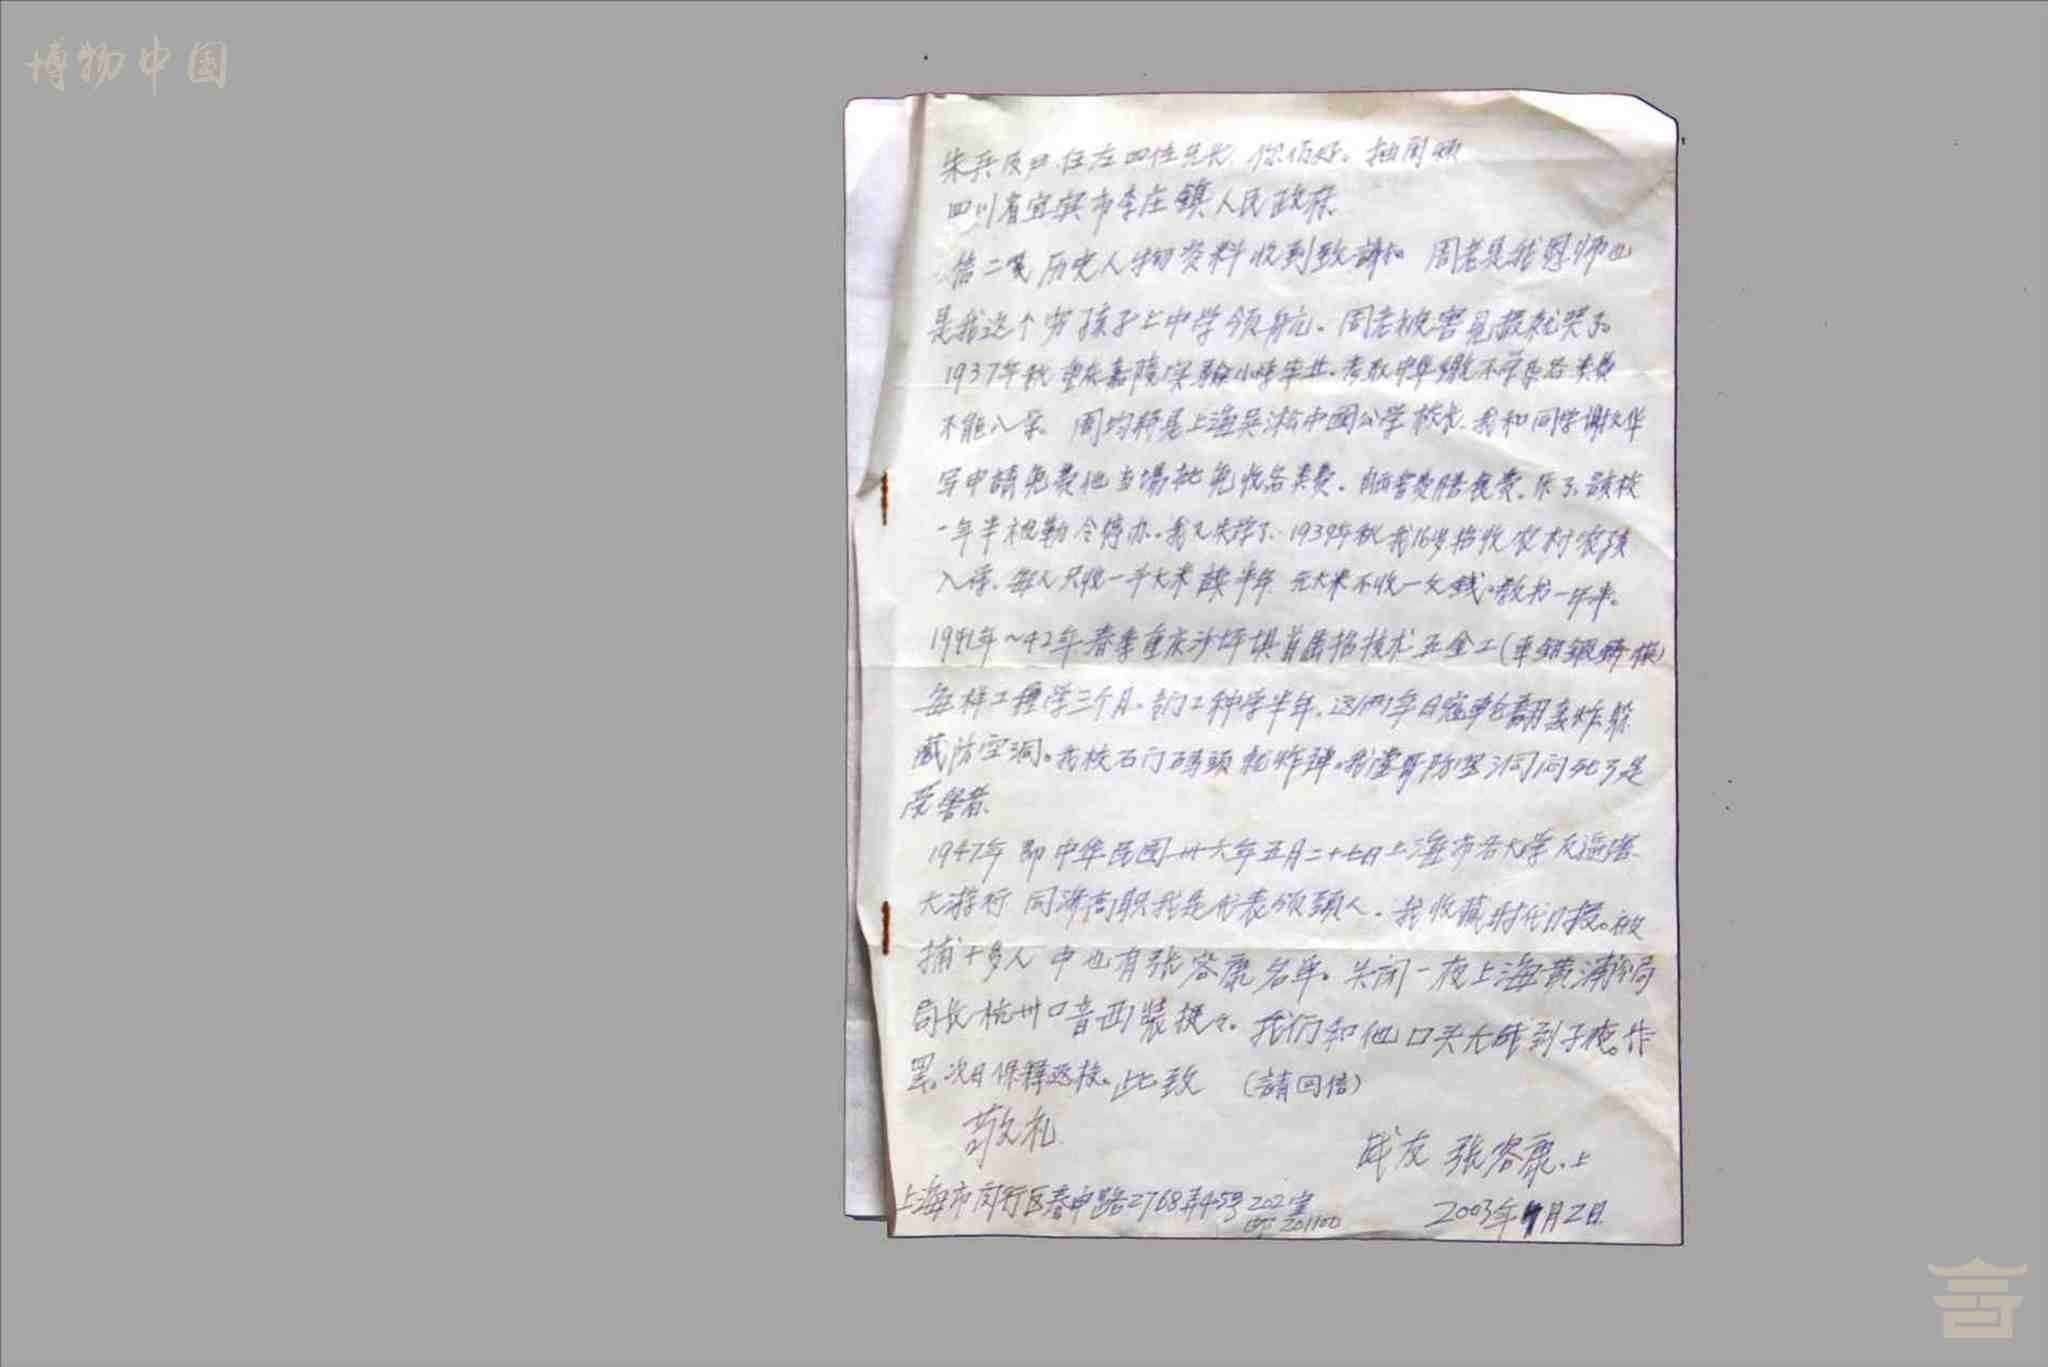 博物中国
四位兄长、你们好。抽闲烦
四川省宜宾市李庄镇人民政府
信二页历史人物资料收到致謝。周老是我恩师也
是我这个穷孩子上中学领航。周老被害見报就哭了。
1937年秋重庆嘉陵实驗小学毕业。考取
不能入学。周均时是上海吴淞中國公学校长。我和同学謝文华
写申請免费他当場批免收各类费。自画書费膳食费。乐了。該校
一年半被勒令停办。我又失学了。1939年秋我16岁招收农村农孩
入学。每人只收一斗大米 讀半年 无大米不收一文錢。教书一年半。
1941年~42年春季重庆沙坪垻首届招技术五金工(車鉗鍛鑄模)
每样工種学三个月。专门工种学半年。这两年日寇輪翻轰炸躲
藏防空洞。我校石门码頭 炸弹。我堂哥防空洞闷死了是
受害者
1947年即中华民国卅六年五月二十七日上海市各大学反迫害
大游行 同济高职我是代表领頭人。我收藏时代日报。被
捕十多人中也有张容康名单。关闭一夜上海黄浦分局
局长杭州口音西装挺々。我们和他口头大战到子夜。作
罢。次日保释返校。此致 (請回信)
敬礼
战友 张容康.上
上海市闵行区春申路2768弄45号202室
邮 201100
2003年 月2日